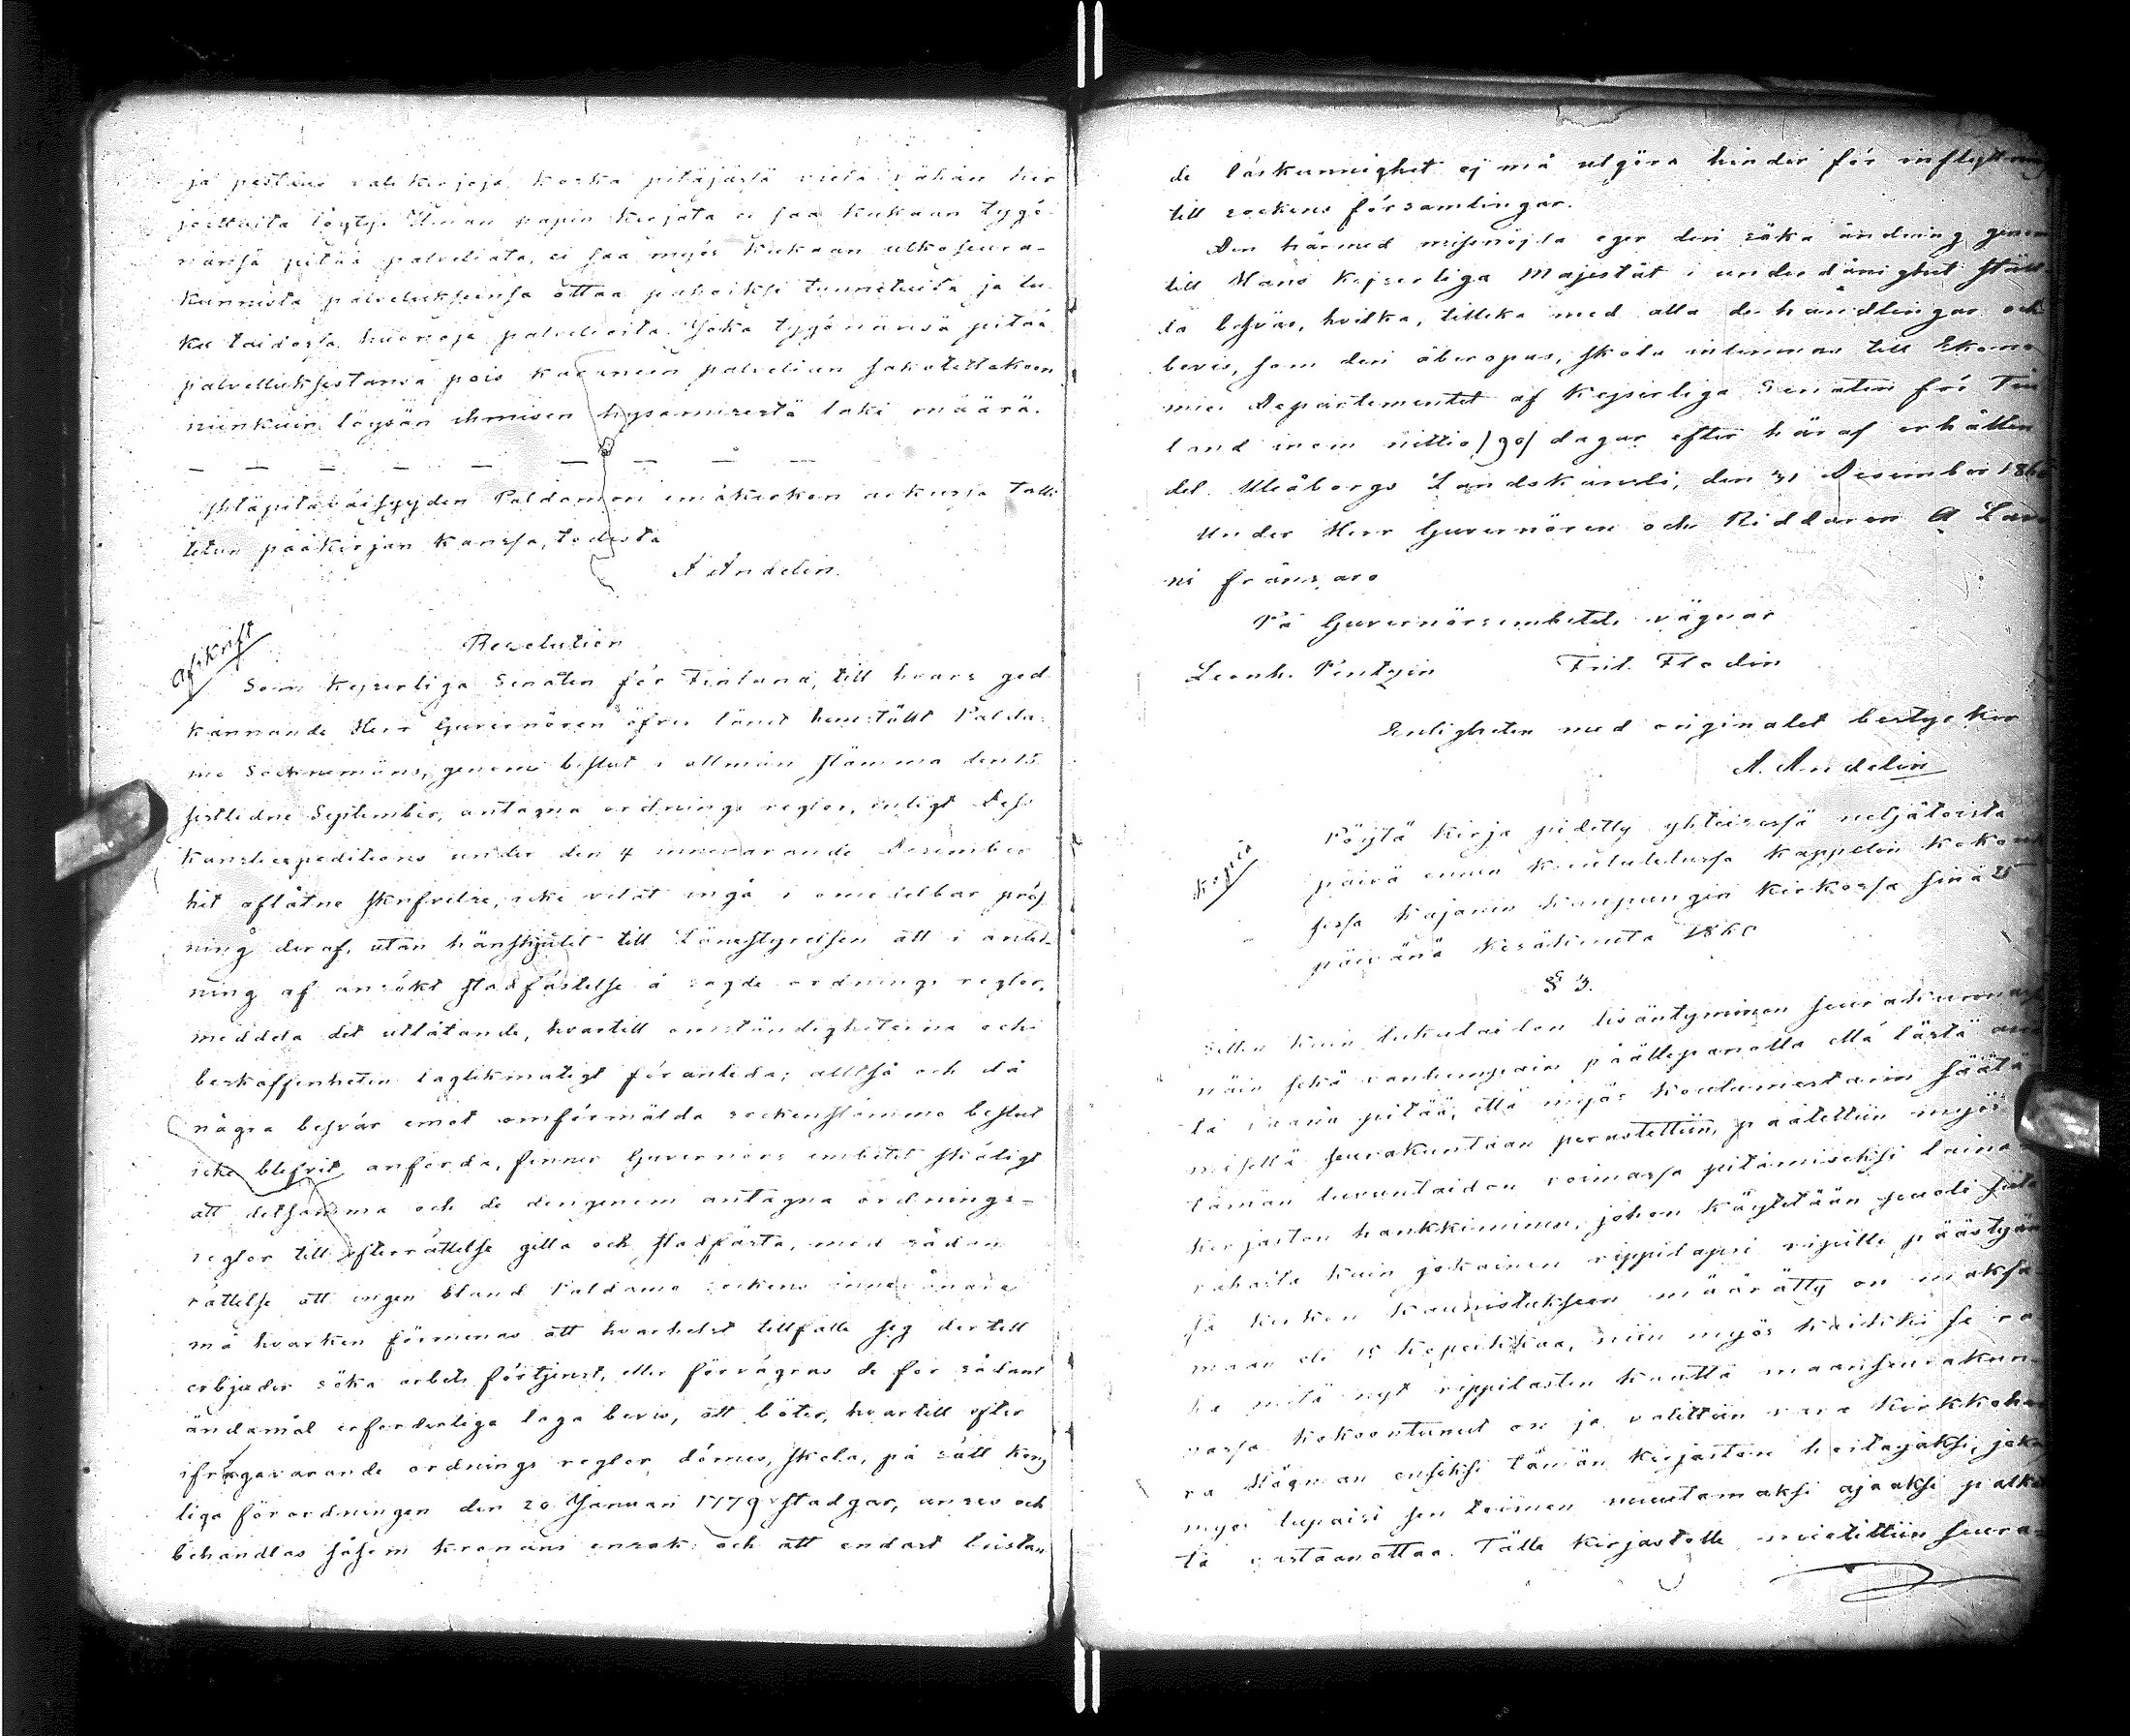 ja pestous kirjoja, koska pitäjästä vielä vähän kir
joettuita löytyi. Ilman papin kirjata ei saa kukaan tygö
nänsä pitää palveliata, ei saa myös kukaan ulkoseura-
kunnista palvelukseensa ottaa pahoiksi tunnetuita ja lu
ku taidosta huonoja palvelioita. Joka tygönänsä pitää
palvelluksestansa pois karanneen palvelian sakotettakoon
niinkuin löysän ihmisen hysämisestä laki määrä.
— — — — — — — — —
Yhtäpitäväisyyden Paldamon emäkirkon arkussa talle
tetun pääkirjan kanssa, todista
A Andelin.
Afskrift
Resolution
Som Kejserliga Senaten för Finland, till hvars god
kännande Herr Guvernören öfver länet hemstält Palda-
mo Socknemäns, genom beslut i allmän stämma den 15
sistlidne September, antagna ordnings reglor, enligt Dess
Kansliexpeditions under den 4 innevarande December
hit aflåtne skrifvelse, icke velat ingå i omedelbar pröf
ning deraf, utan hänskjutit till Länestyrelsen att i anled-
ning af ansökt stadfästelse å sagde ordnings reglor,
meddela det utlåtande, hvartill omständigheterna och
beskaffenheten laglikmätigt föranleda; alltså och då
några besvär emot omförmälda sockenstämmo beslut
icke blifvit anförda, finner Guvernörs embetet skäligt
att detsamma och de derigenom antagna ordnings-
reglor till efterrättelse gilla och stadfästa, med sådan
rättelse att ingen bland Paldamo sockens innevånare
må hvarken förmenas att hvarhelst tillfälle sig dertill
erbjuder söka arbets förtjenst, eller förvägras de för sådant
ändamål erforderliga laga bevis, att böter, hvartill efter
ifrågavarande ordnings reglor dömes, skola, på sätt Kong
liga förordningen den 20 Januari 1779 stadgar, anses och
behandlas såsom kronans ensak och att endast bristan
de läskunnighet ej må utgöra hinder för inflyttning
till sockens församlingar.
Den härmed missnöjda eger deri söka ändring genom
till Hans Kejserliga Majestät i underdånighet ställ
da besvär, hvilka, tillika med alla de handlingar och
bevis, som deri åberopas, skola inlemnas till Ekono
mie Departementet af Kejserliga Senaten för Fin
land inom nittio /90/ dagar efter häraf erhållen
del. Uleåborgs Landskansli, den 31 December 186
Under Herr Guvernören och Riddaren A Lavo
nii frånvaro
På Guvernörsembetets vägnar
Leonh. Pentzin Frit. Flodin
Enligheten med originalet bestyrker
A. Andelin
Kopia
Pöytä kirja pidetty yhteisessä neljätoista
päivä ennen kuulutetussa kappelin kokouk
sessa Kajanin kaupungin kirkossa sinä 25
päivänä Kesäkuuta 1860
§ 3.
Sitten kuin lukutaidon lisäntyminen seurakunnassa
niin sekä vanhempain päällepanolla että lästä
tä vaana pitää, että myös koulumestarin säätä
misellä seurakuntaan perustettiin, päätettiin myös
tämän luvuntaidon voimassa pitämiseksi laina
kirjaston hankkiminen, johon käytetään puoli siitä
rahasta kuin jokainen rippilapsi ripille päästyän
sä kirkon kaunistukseen määrätty on maksa
maan eli 15 kopeikkaa, niin myös kaikki se ra
ha mitä nyt rippilasten kautta maanseurakun-
nassa kokoontunut on ja valittiin vara Kirkkoher
ra Högman ensiksi tämän kirjaston hoitajaksi, joka
myös lupaisi sen toimen muutamaksi ajaksi palka
ta vastaanottaa. Tälle kirjastolle mietittiin seura-